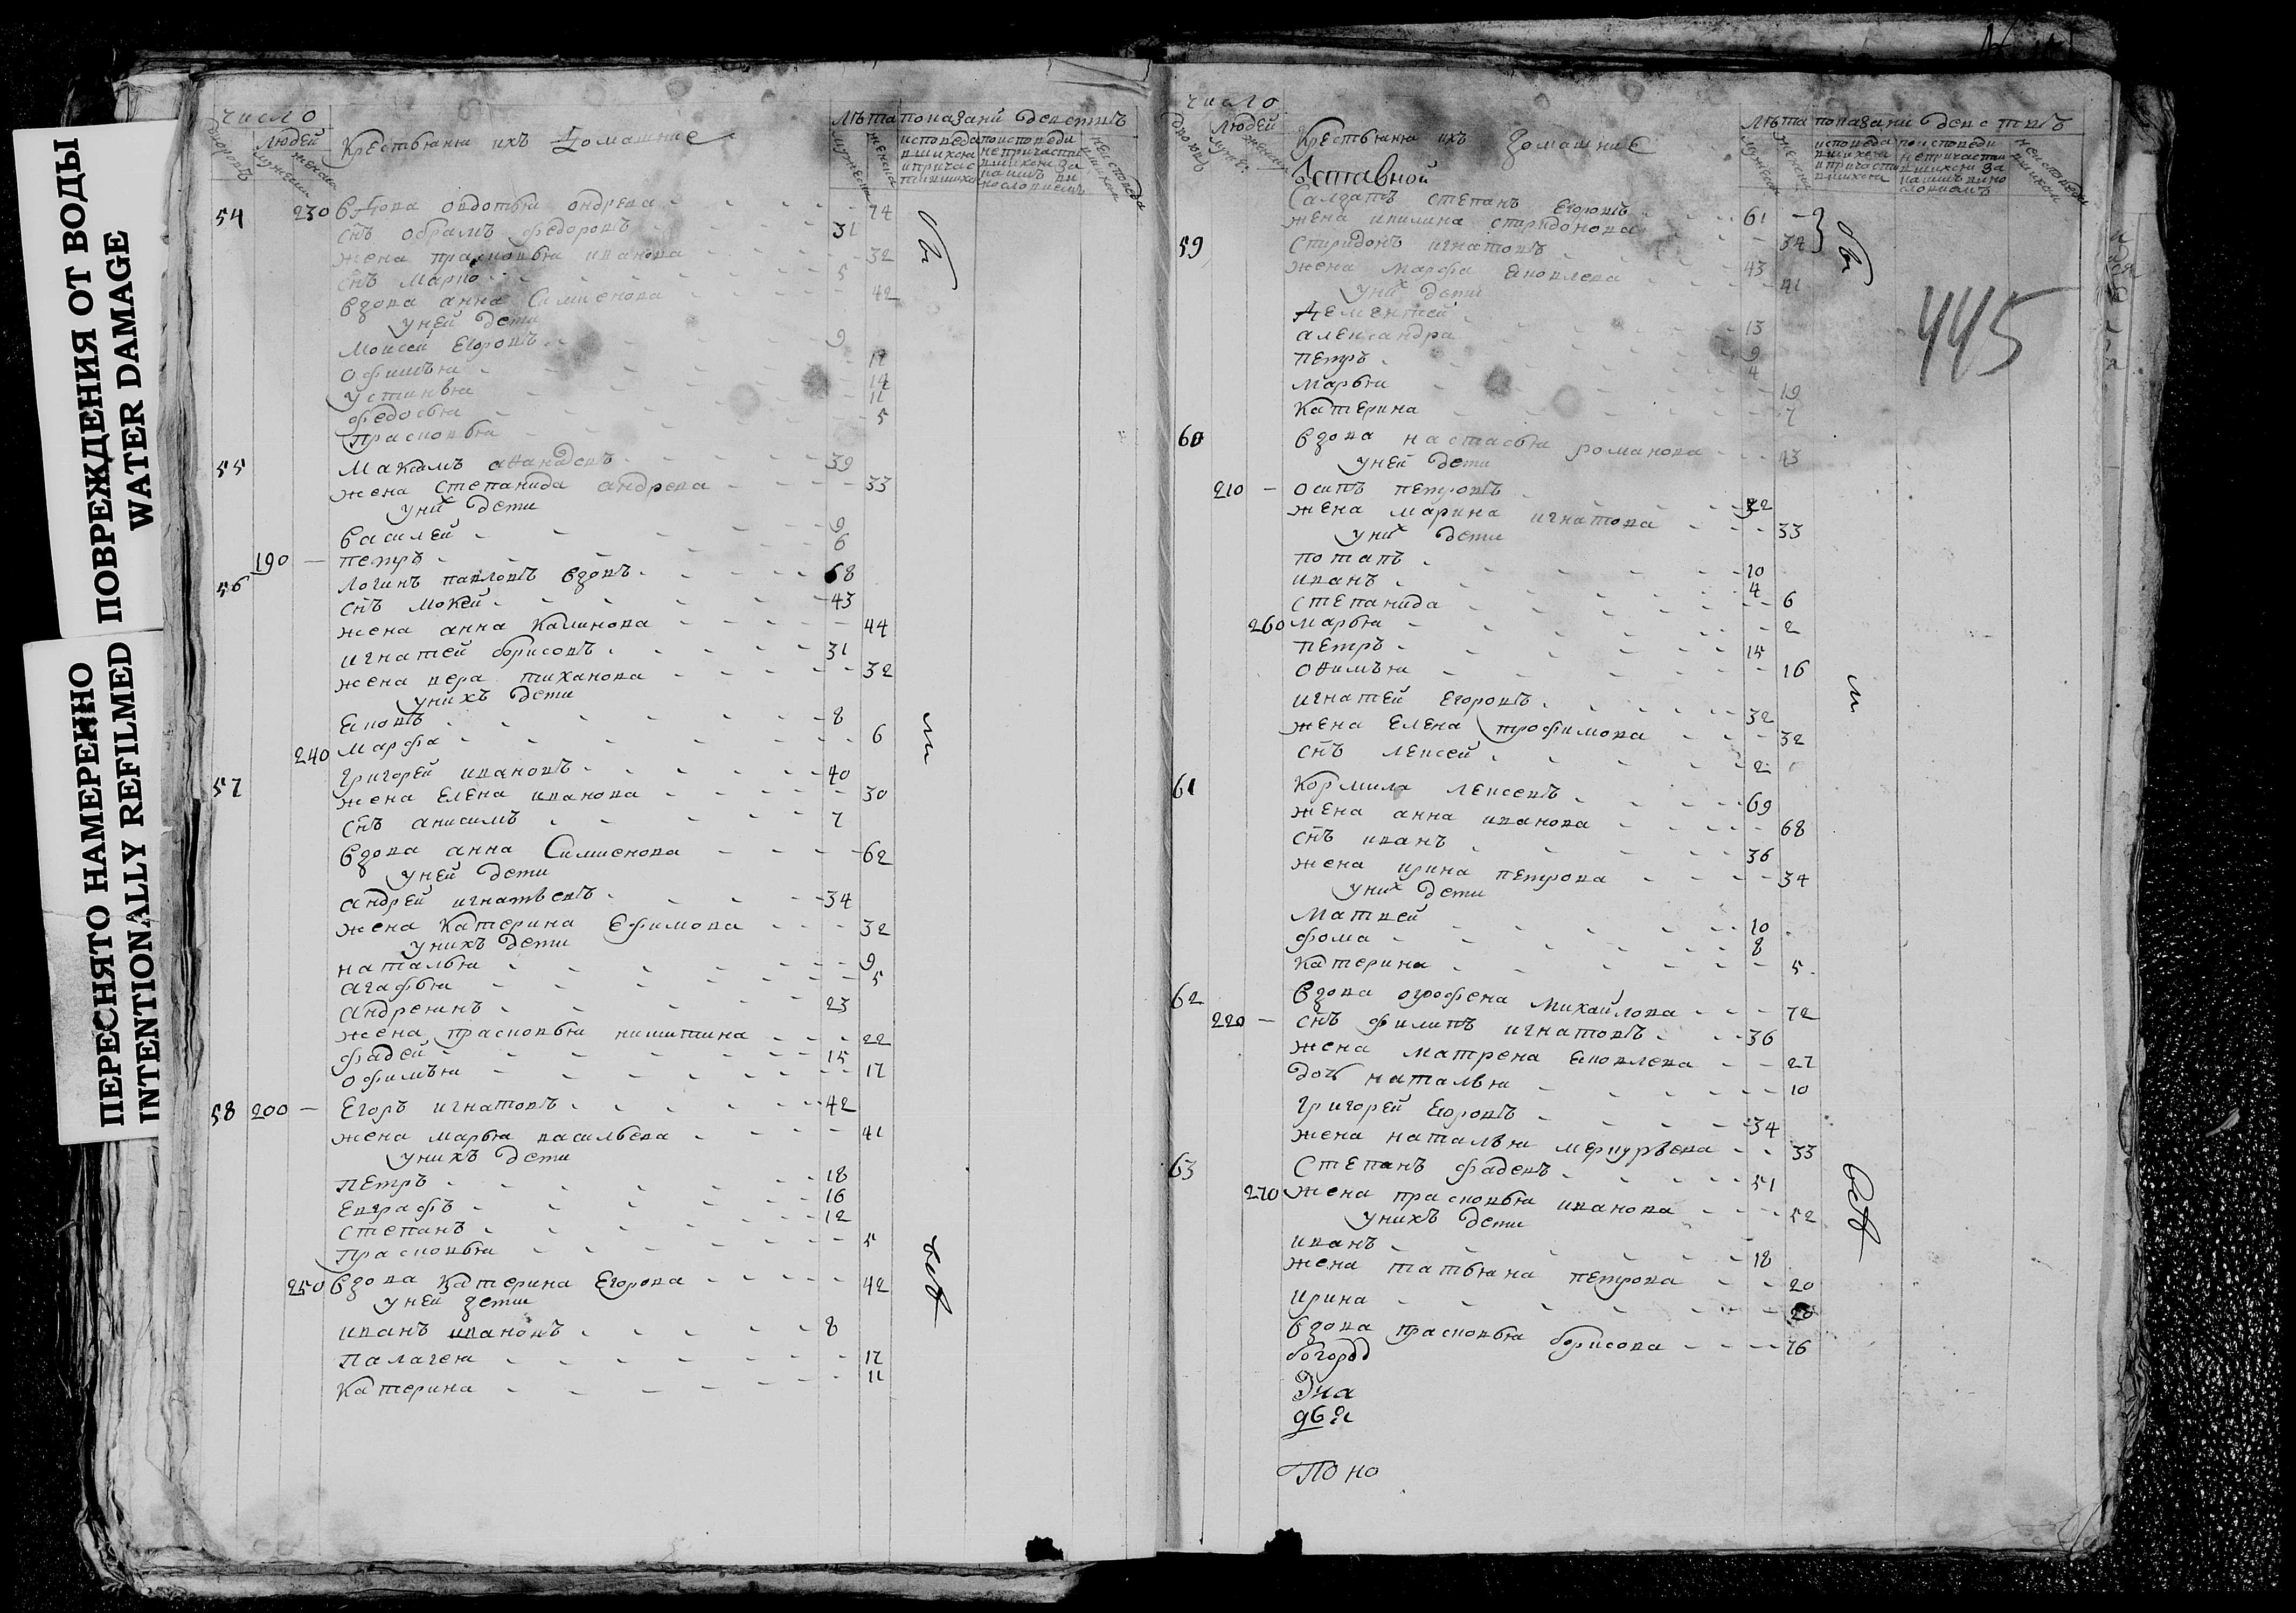 ПОВРЕЖДЕНИЯ ОТ ВОДЫ
WATER DAMAGE
ПЕРЕСНЯТО НАМЕРЕННО
INTENTIONALLY REFILMED
число
людей
Крестьяня ихъ домашние
лѣта показани действъ
54 230 вдова овдотья ондрева 74
снъ обрамъ федоровъ 31
жена прасковья иванова 32
снъ марко 5
вдова анна Симиенова 42
уней дети
Моисей Егоровъ 9
офимья 17
устинья 14
федосья 11
прасковья 5
55 Макимъ аѳанасевъ 39
жена степанида андрева 33
уних дети
василей 9
190 петръ 6
56 логинъ павловъ вдовъ 68
снъ мокей 43
жена анна Калинова 44
игнатей борисовъ 31
жена вера тиханова 32
унихъ дети
яковъ 8
240 марфа 6
57 григорей ивановъ 40
жена елена иванова 30
снъ анисимъ 7
вдова анна Симиенова 62
уней дети
андрей игнатьевъ 34
жена Катерина Ефимова 32
унихъ дети
наталья 9
агафья 5
андреянъ 23
жена прасковья никитина 22
фадей 15
офимья 17
58 200 Егоръ игнатовъ 42
жена марья васильева 41
унихъ дети
петръ 18
евграфъ 16
степанъ 12
прасковья 5
250 вдова катерина Егорова 42
уней дети
иванъ ивановъ 8
палагея 17
катерина 11
число
людей
Крестьяня ихъ домашние
лѣта показани действъ
Уставной
Салдатъ степанъ Егоровъ 61
жена акилина спиридонова 34
59 спиридонъ игнатовъ 43
жена марфа яковлева 41
уних дети
дементей 13
александра 9
петръ 4
марья 19
Катерина 7
445
60 вдова настасья романова 43
уней дети
210 осипъ петровъ 32
жена марина игнатова 33
уних дети
потапъ 10
иванъ 4
степанида 6
260 марья 2
петръ 15
оѳимья 16
игнатей Егоровъ 32
жена Елена трофимова 32
снъ лексей 2
61 Кормила лексевъ 69
жена анна иванова 68
снъ иванъ 36
жена ирина петрова 34
уних дети
Матвей 10
фома 8
катерина 5
62 вдова огрофена Михайлова 72
220 снъ филипъ игнатовъ 36
жена матрена яковлева 27
дочь наталья 10
григорей Егоровъ 34
жена наталья меркурьева 33
63 Степанъ фадевъ 51
270 жена прасковья иванова 52
унихъ дети
иванъ 18
жена татьяна петрова 20
ирина 20
вдова прасковья борисова 76
богород
По но